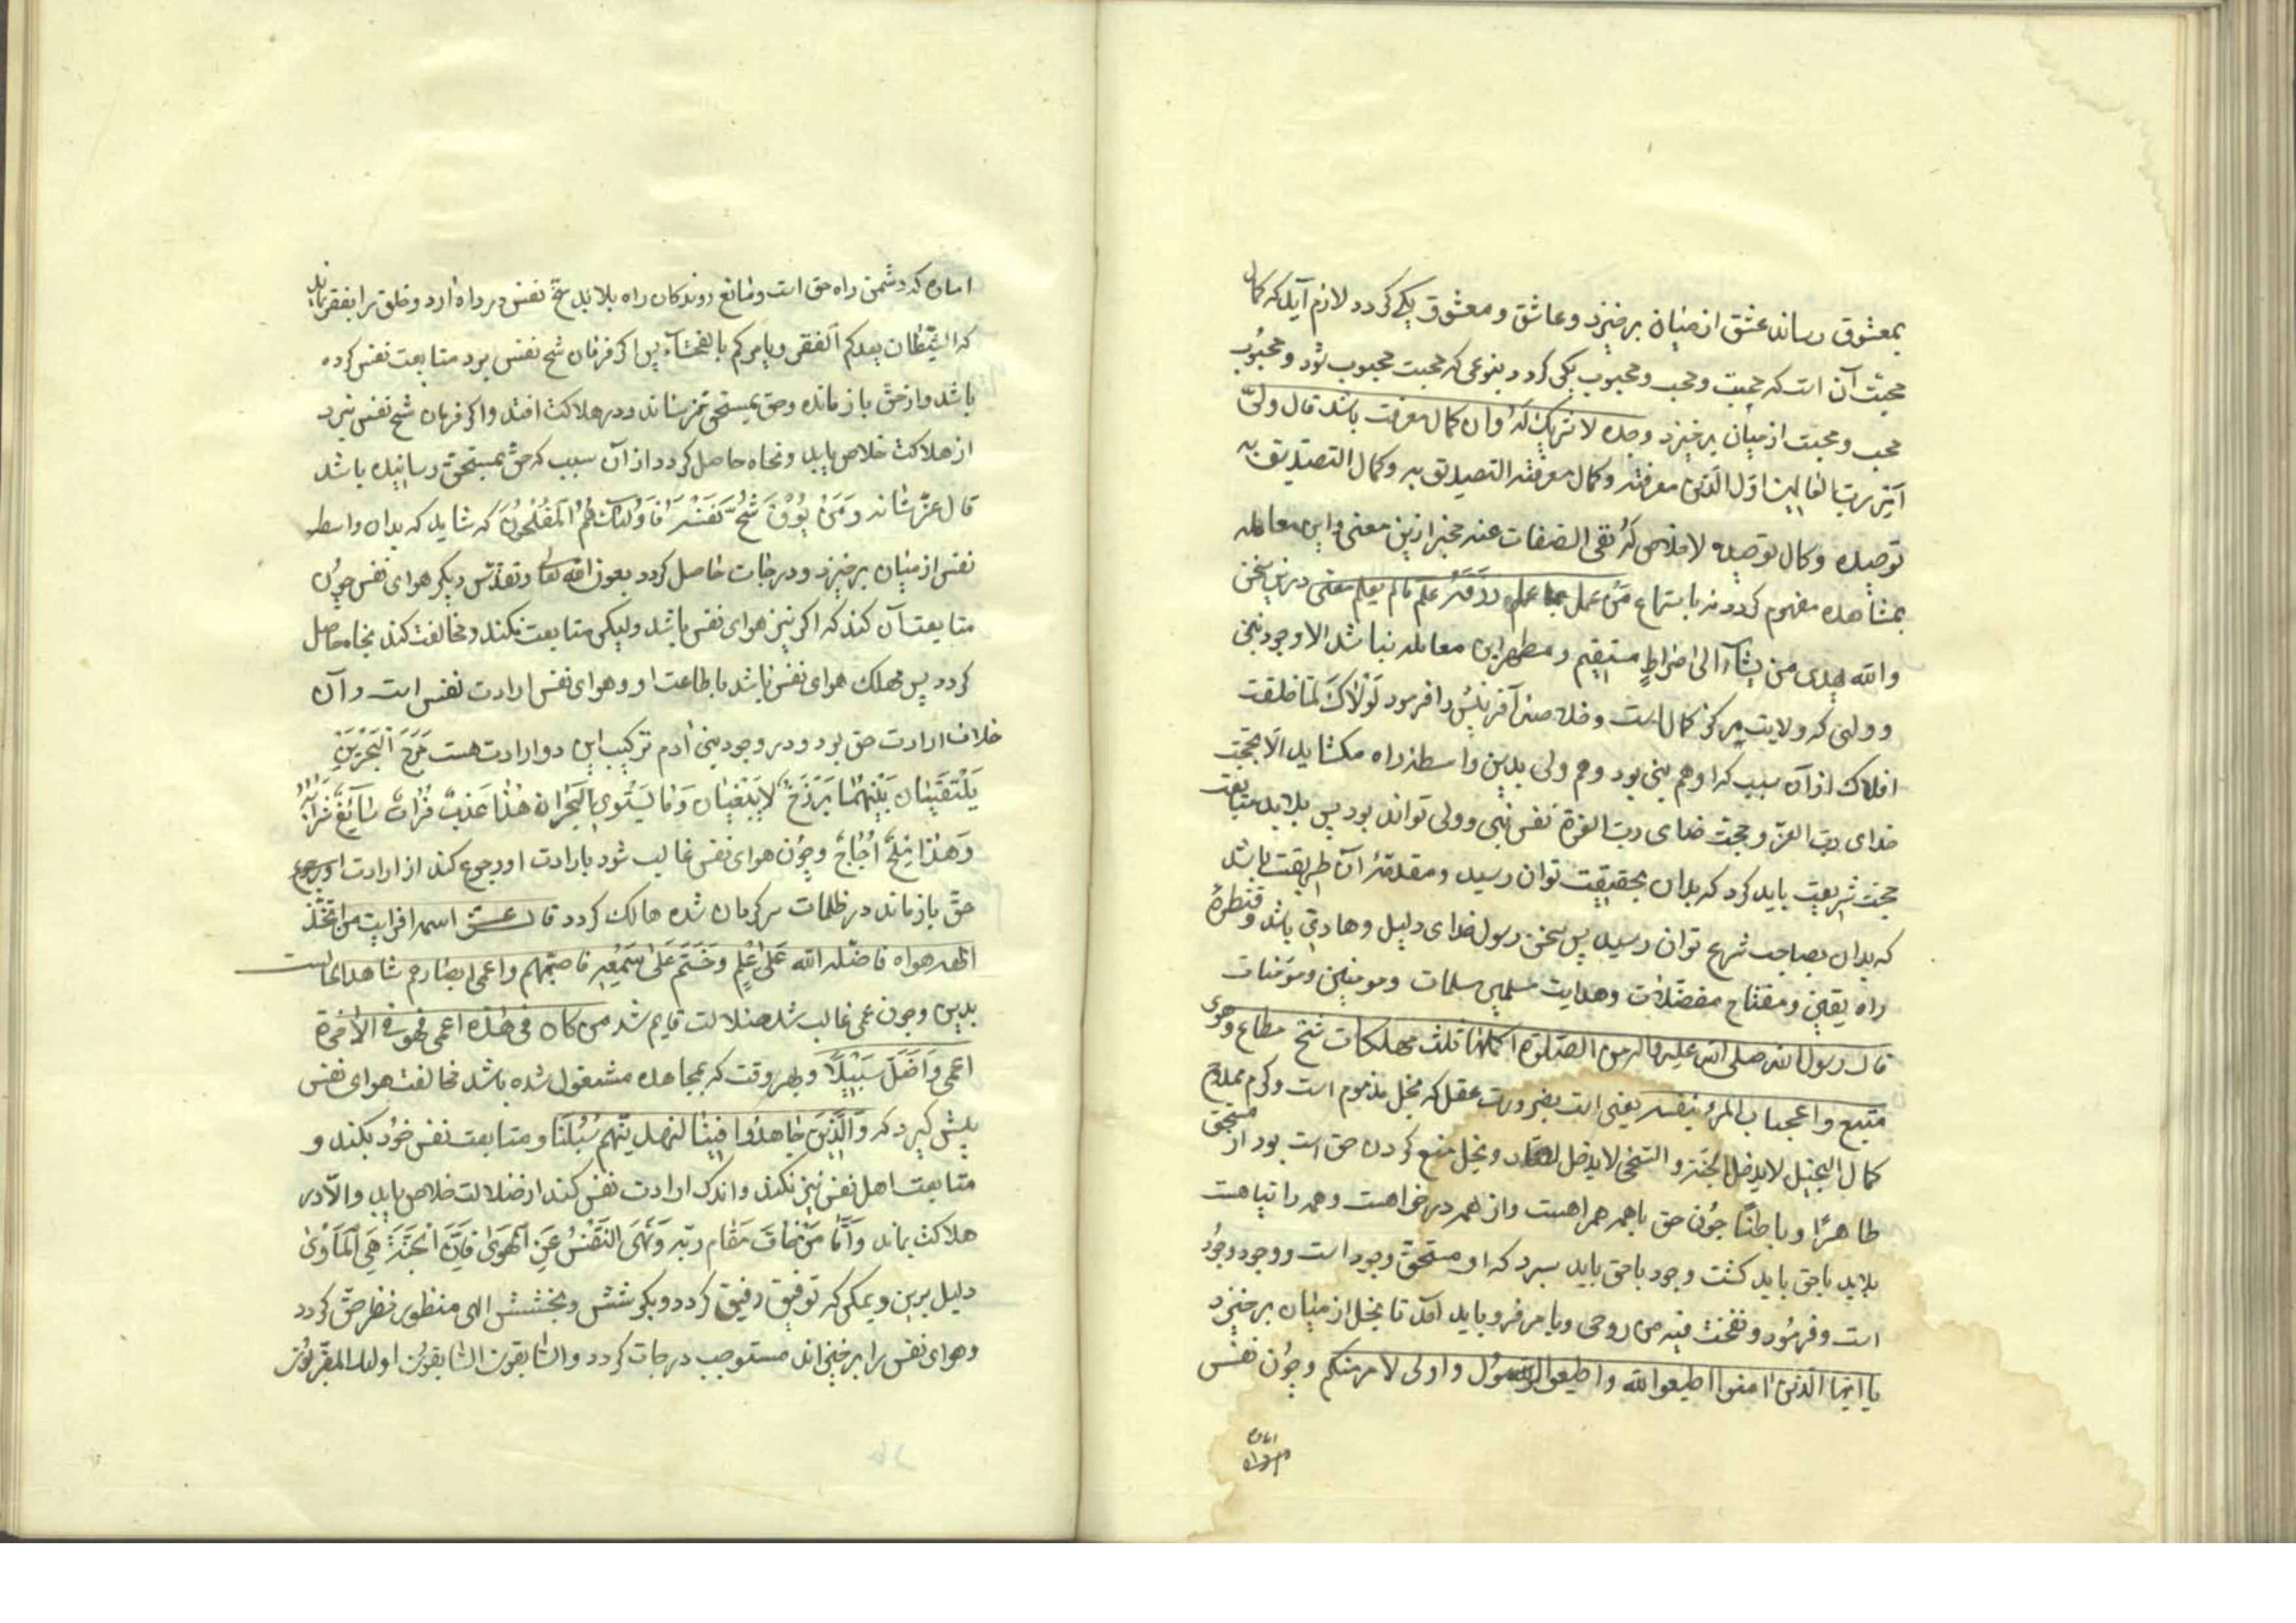 بمعشوق رساند عشق از میان برخیزد و عاشق و معشوق یکی کردد لازم آید که کمال
محبت آن است که محبت و محب و محبوب یکی کردد بنوعی که محبت محبوب شود و محبوب
محب و محبت از میان برخیزد وحده لا شریک له و آن کمال معرفت باشد قال ولیّ
رب العالمین اوّل الدّین معرفته و کمال معرفته التصدیق به و کمال التصدیق به
توحیده و کمال توحیده لاخلاص له نفی الصّفات عنه مخبر ازین معنی و این معامله
بمشاهده مفهوم کردد نه باستماع من عمل بما علم علم مالم یعلم معنی درین سخن
والله یهدی من یشآء الی صراط مستقیم و مظهر این معامله نباشد الا وجود نبی
و ولی که ولایت مرکز کمالست و خلاصه آفرینش را فرمود لولاک لما خلقت
افلاک از آن سبب که او هم نبی بود و هم ولی بدین واسطه راه مکشاید الا بحجّت
خدای ربّ العزّه و حجت خدای ربّ العزة نفس نبی و ولی تواند بود پس بلابد متابعت
حجت شریعت باید کرد که بدان بحقیقت توان رسید و مقدمهٔ آن طریقت باشد
که بدان بصاحب شرع توان رسید پس سخن رسول خدای دلیل و هادی باشد و قنطرهٔ
راه یقین و مفتاح معضلات و هدایت مسلمین مسلمات و مومنین و مؤمنات
قال رسول الله صلی الله علیه واله من الصّلوة اکملها ثلث مهلکات شح مطاع و هوی
متبع و اعجاب المرء بنفسه یعنی است بضرورت عقل که بخل مذموم است و کرم ممدوح
کمال البخیل لا یدخل الجنّة و السّخی لا یدخل و بخل منع کردن حق است بود از مستحق
ظاهرًا و باطنًا چون حق باهمه همراهست و از همه در خواهست و همه را تپاهست
بلابد باحق باید کشت وجود باحق باید سپرد که او مستحق وجود است و وجود وجود
است و فرمود و نفخت فیه من روحی و بامر فرو باید آمد تا بخل از میان برخیزد
یا ایها الذین امنوا اطیعوا الله و اطیعوا الرسول و اولی الامر منکم و چون نفس
اماره
اماره که دشمن راه حق است و مانع روندکان راه بلابد شح نفس در راه آرد و خلق را بفقر
که الشّیطان یعدکم الفقر و یامرکم بالفحشآء پس اکر فرمان شح نفس برد متابعت نفس کرده
باشد و از حق باز مانده و حق بمستحق نرساند و در هلاکت افتد و اکر فرمان شح نفس نبرد
از هلاکت خلاص یابد و نجاه حاصل کردد از آن سبب که حق بمستحق رسانیده باشد
قال عزّ شانه وَمَنْ یُوْقَ شُحَّ نَفسِه فَاُولئک هُمُ المُفْلِحُونَ که شاید که بدان واسطه
نفس از میان برخیزد و درجات حاصل کردد بعون الله تعالی و تقدّس دیکر هوای نفس چون
متابعت آن کند که اکر نیز هوای نفس باشد ولیکن متابعت نکند و مخالفت کند نجاه حاصل
کردد پس مهلک هوای نفس باشد باطاعت او و هوای نفس ارادت نفس است و آن
خلاف ارادت حق بود و در وجود بنی آدم ترکیب این دو ارادت هست مَرَجَ الْبَحْرَیْنِ
یَلْتَقِیَان بَیْنَهُمَا بَرْزَخٌ لایَبْغِیَان وَمَا یَسْتَوِی الْبَحْرَان هٰذا عَذبٌ فُرَاتٌ سَآیِغٌ شَرَابُهُ
وَهٰذا مِلْحٌ اُجَاجٌ و چون هوای نفس غالب شود بارادت او رجوع کند از ارادت او رجوع
حق باز ماند در ظلمات سرکردان شده هالک کردد قال عزّ اسمه افرایت من اتّخذ
الٰهه هواه فاضلّه الله عَلی عِلم وَخَتَمَ عَلی سَمْعِهِ فاصمّهم و اعمی ابصارهم شاهد حالست
بدین و چون عمی غالب شد ضلالت قایم شد من کان فی هٰذه اعمی فهو فی الاٰخرة
اعمی وَاَضَلّ سَبیلًا و بهر وقت که بمجاهده مشغول شده باشد مخالفت هوای نفس
پیش کیرد که وَالَّذِینَ جَاهَدُوا فِینَا لنهدِیَنّهم سُبُلَنَا و متابعت نفس خود بکند و
متابعت اهل نفس نیز نکند و اندک ارادت نفس کند از ضلالت خلاص یابد و الّا در
هلاکت بماند وَاَمّا مَنْ خافَ مَقَام ربّه وَنَهَی النَّفْسَ عَنِ الْهَوٰی فَاِنَّ الجَنَّةَ هِیَ الْمَاوٰی
دلیل برین و یمکن که توفیق رفیق کردد و بکوشش و بخشش الهی منظور نظر حق کردد
و هوای نفس را برخیزاند مستوجب درجات کردد والسّابقون السّابقون اولئک المقرّبون